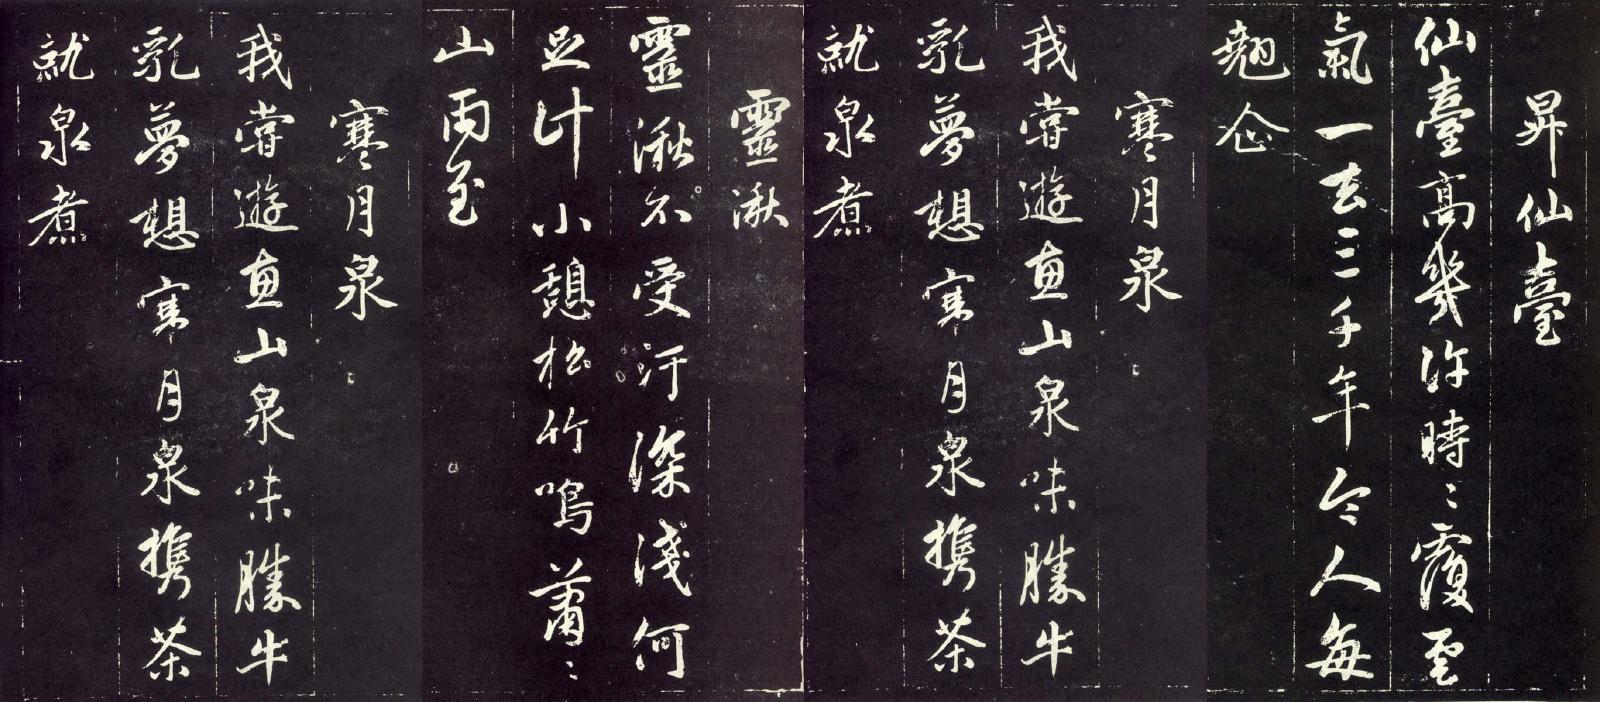 昇仙臺
仙臺高幾許時〻覆雲
氣一去三千年令人每
翹企
寒月泉
我嘗遊惠山泉味勝牛
乳夢想寒月泉攜茶
就泉煮
靈湫
靈湫不受汙深淺何
足計小憩松竹鳴蕭〻
山雨至
寒月泉
我嘗遊惠山泉味勝牛
乳夢想寒月泉攜茶
就泉煮